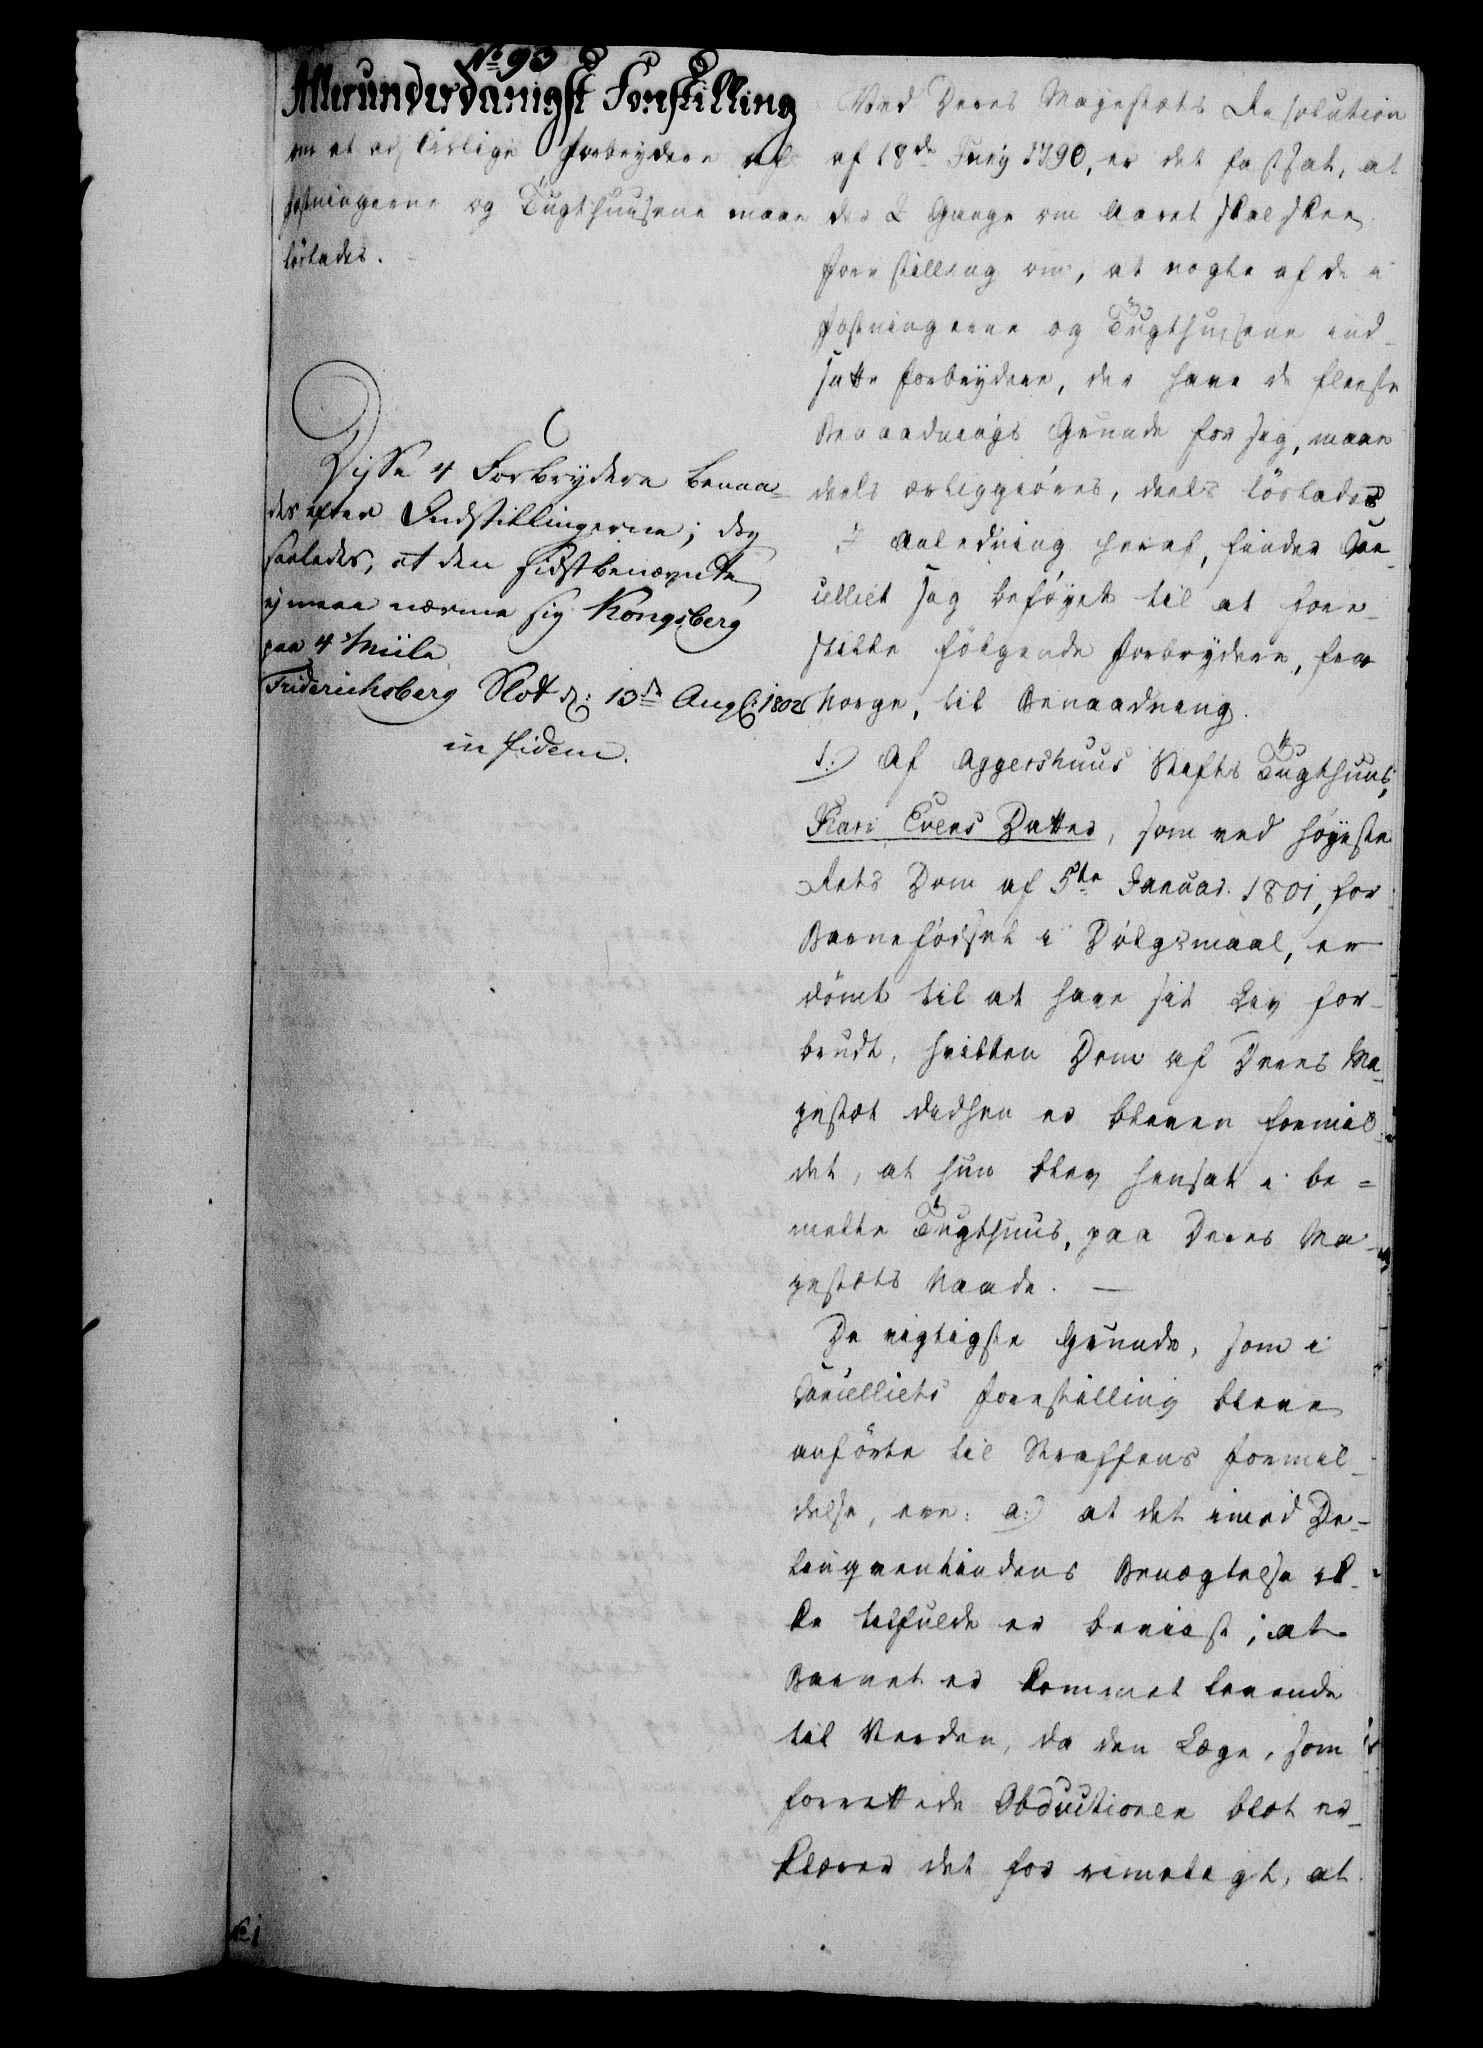 No 93
Allerunderdanigst Forestilling
om at adskillige Forbrydere af
Fæstningerne og Tugthuusene maae
løslades.
Disse 4 Forbrydere benaa-
des efter Indstillingerne; dog
saaledes, at den sidstbenævnte
ej maae nærme sig Kongsberg
paa 4 Miile
Friderichsberg Slot d: 13de Aug: 1802
in fidem.
Ved Deres Majestæts Resolution
af 18de Junij 1790, er det fastsat, at
der 2 Gange om Aaret skal skee
Forestilling om, at nogle af de i
Fæstningerne og Tugthuusene ind-
satte Forbrydere, der have de fleeste
Benaadnings Grunde for sig, maae
deels ærliggiøres, deels løslades
I Anledning heraf, finder Can-
celliet sig beføyet til at fore-
stille følgende Forbrydere, fra
Norge, til Benaadning.
1.) Af Aggershuus Stifts Tugthuus,
Kari Evens Datter, som ved Høyeste
Rets Dom af 5te Januar. 1801, for
Barnefødsel i Dølgsmaal, er
dømt til at have sit Liv for-
brudt, hvilken Dom af Deres Ma-
jestæt didhen er bleven formil-
det, at hun blev hensat i be-
meldte Tugthuus, paa Deres Ma-
jestæts Naade. —
De vigtigste Grunde, som i
Cancelliets Forestilling bleve
anførte til Straffens Formil-
delse, ere: a.) at det imod De-
linqventindens Benægtelse ik-
ke tilfulde er beviist, at
Barnet er kommet levende
til Verden, da den Læge, som
forrettede Obductionen blot er-
klærer det for rimeligt, at
No 1